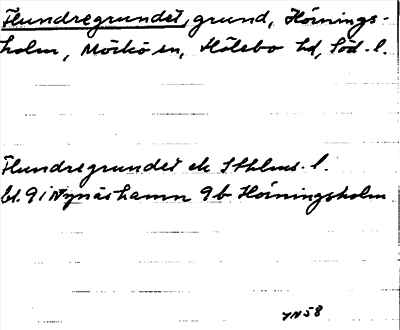 Flundregrundet, grund, Hörnings-
holm, Mörkö sn, Hölebo hd, Söd. l.
Flundregrundet ek Sthlms. l.
bl. 9 i Nynäshamn 9b Hörningsholm
YN58